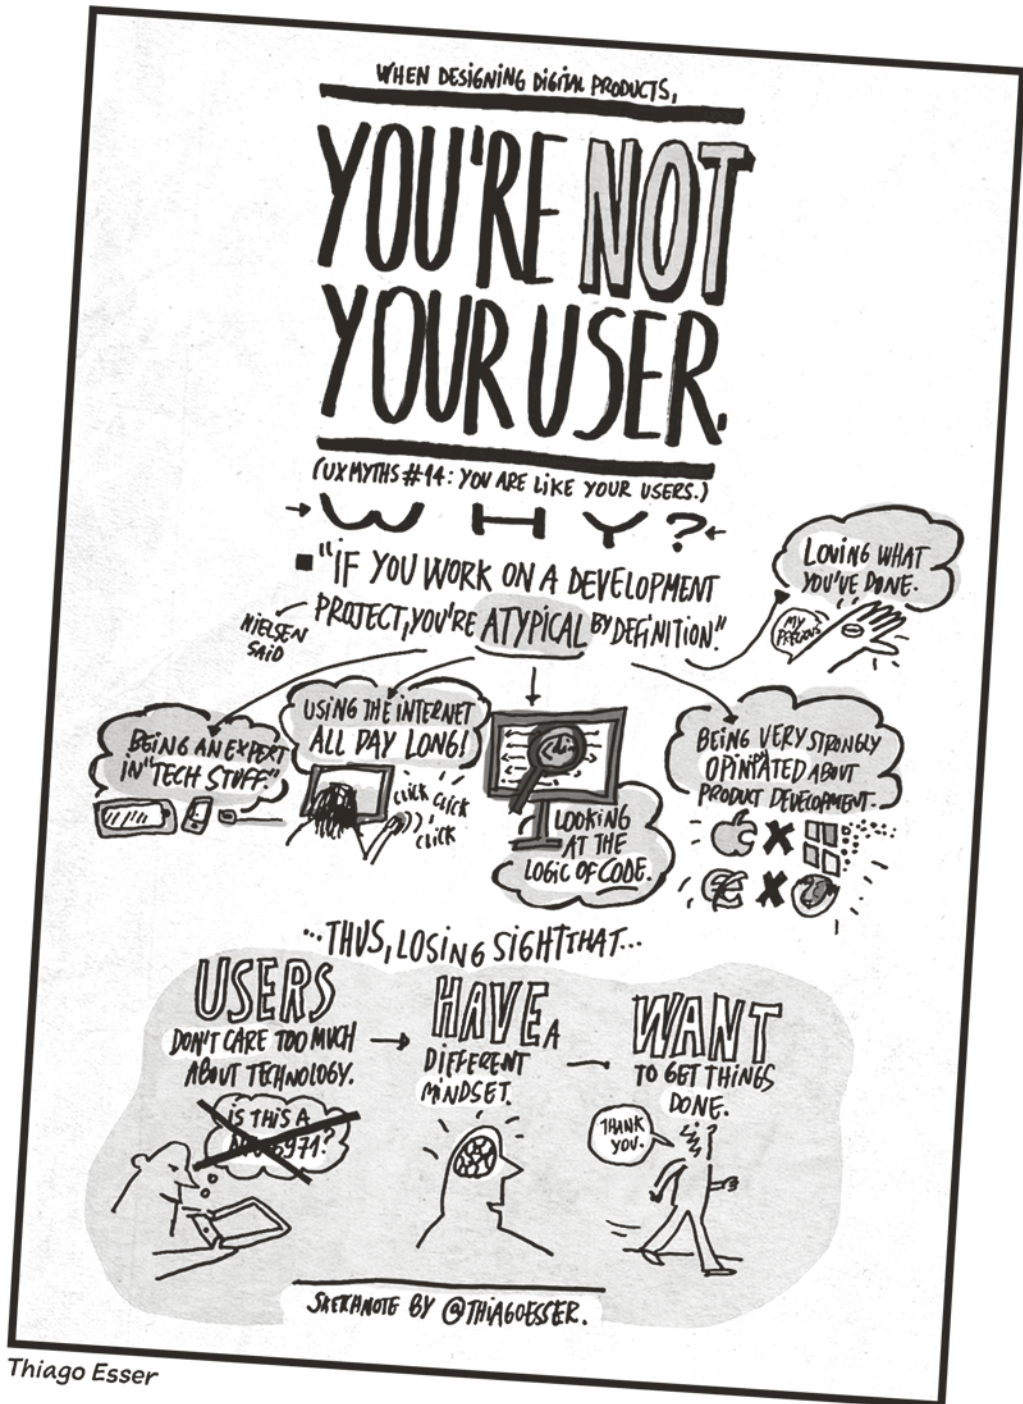 WHEN DESIGNING DIGITAL PRODUCTS,
YOU'RE NOT
YOUR USER.
(UX MYTHS #14: YOU ARE LIKE YOUR USERS.)
WHY?
"IF YOU WORK ON A DEVELOPMENT
PROJECT, YOU'RE ATYPICAL BY DEFINITION."
NIELSEN
SAID
LOVING WHAT
YOU'VE DONE.
MY
PRECIOUS
BEING AN EXPERT
IN "TECH STUFF."
USING THE INTERNET
ALL DAY LONG!
CLICK CLICK
CLICK
LOOKING
AT THE
LOGIC OF CODE.
BEING VERY STRONGLY
OPINATED ABOUT
PRODUCT DEVELOPMENT.
...THUS, LOSING SIGHT THAT...
USERS
DON'T CARE TOO MUCH
ABOUT TECHNOLOGY.
IS THIS A
HAVE A
DIFFERENT
MINDSET.
WANT
TO GET THINGS
DONE.
THANK
YOU.
SKETCHNOTE BY @THIAGOESSER.
Thiago Esser